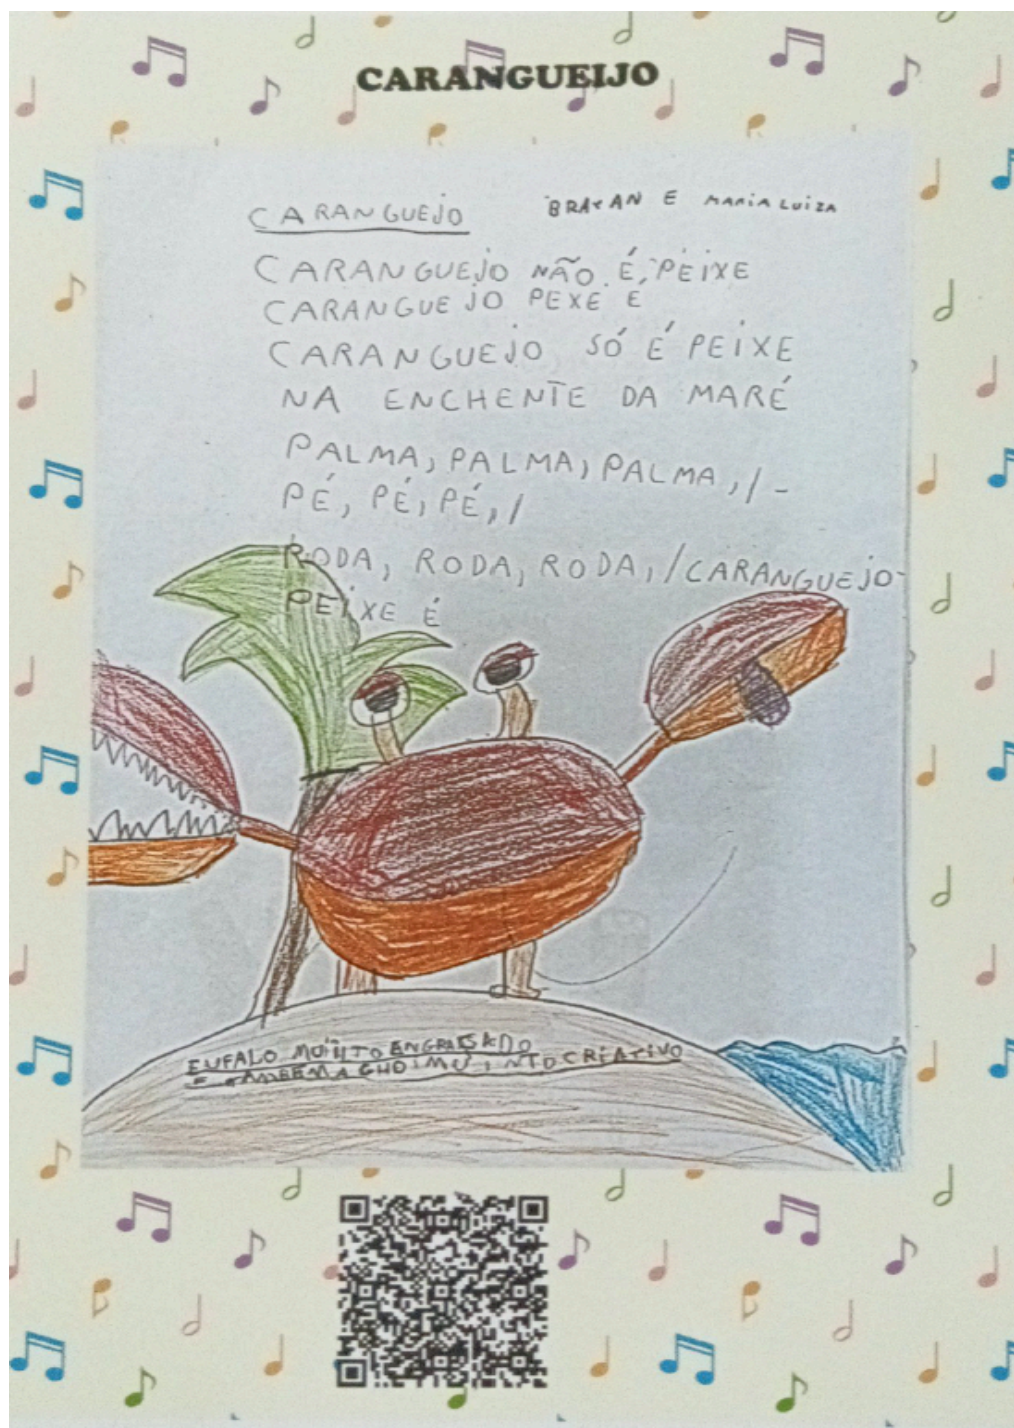 CARANGUEIJO
CARANGUEJO BRAYAN E MARIA LUIZA
CARANGUEJO NÃO É PEIXE
CARANGUEJO PEXE E
CARANGUEJO SÓ É PEIXE
NA ENCHENTE DA MARÉ
PALMA, PALMA, PALMA, / -
PÉ, PÉ, PÉ, /
RODA, RODA, RODA, / CARANGUEJO-
PEIXE É
CRIATIVO